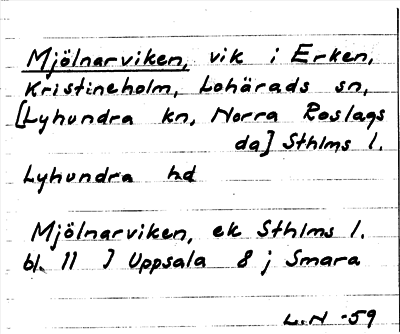 Mjölnarviken, vik i Erken,
Kristineholm, Lohärads sn,
[Lyhundra kn, Norra Roslags
da] Sthlms l.
Lyhundra hd
Mjölnarviken, ek Sthlms l.
bl. 11 J Uppsala 8 j Smara
L.N -59